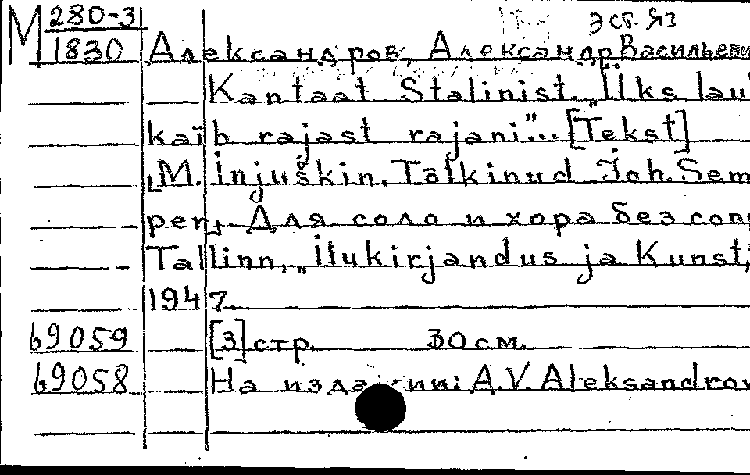 М 280-3 эст. яз
1830 Александров, Александр Васильеви
Kantaat Stalinist. „Üks lau
kaib rajast rajani"... [Tekst]
M. Injuškin. Tõlkinud Joh. Sem
per, Для соло и хора без соп
Tallinn, „Ilukirjandus ja Kunst,
1947.
69059 [3] стр. 30 см.
69058 На издании: A.V. Aleksandrov